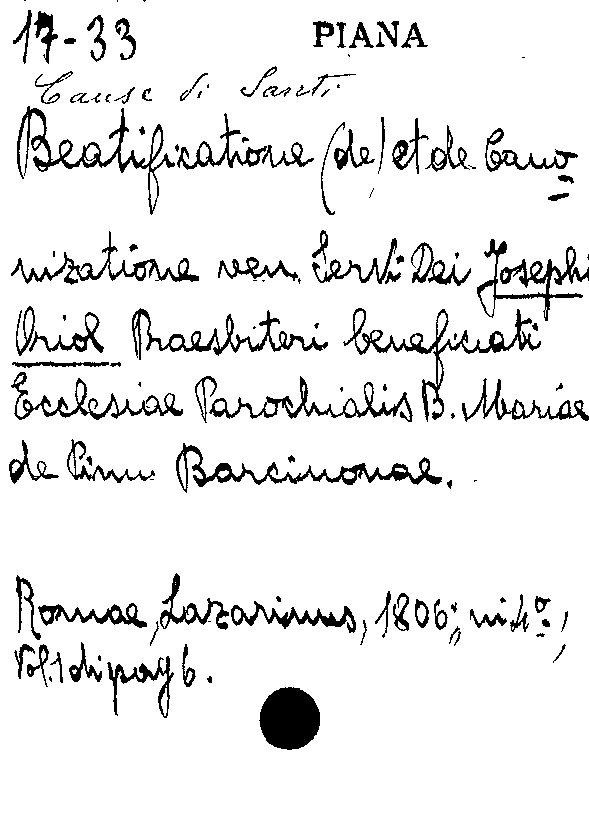 17-33 PIANA
Cause di Santi
Beatificatione (de) et de Cano=
nizatione ven. Servi Dei Josephi
Oriol Praesbiteri beneficiati
Ecclesiae Parochialis B. Mariae
de Pinu Barcinonae.
Romae, Lazarinus, 1806; in 4º,
Vol. 1 di pag 6.